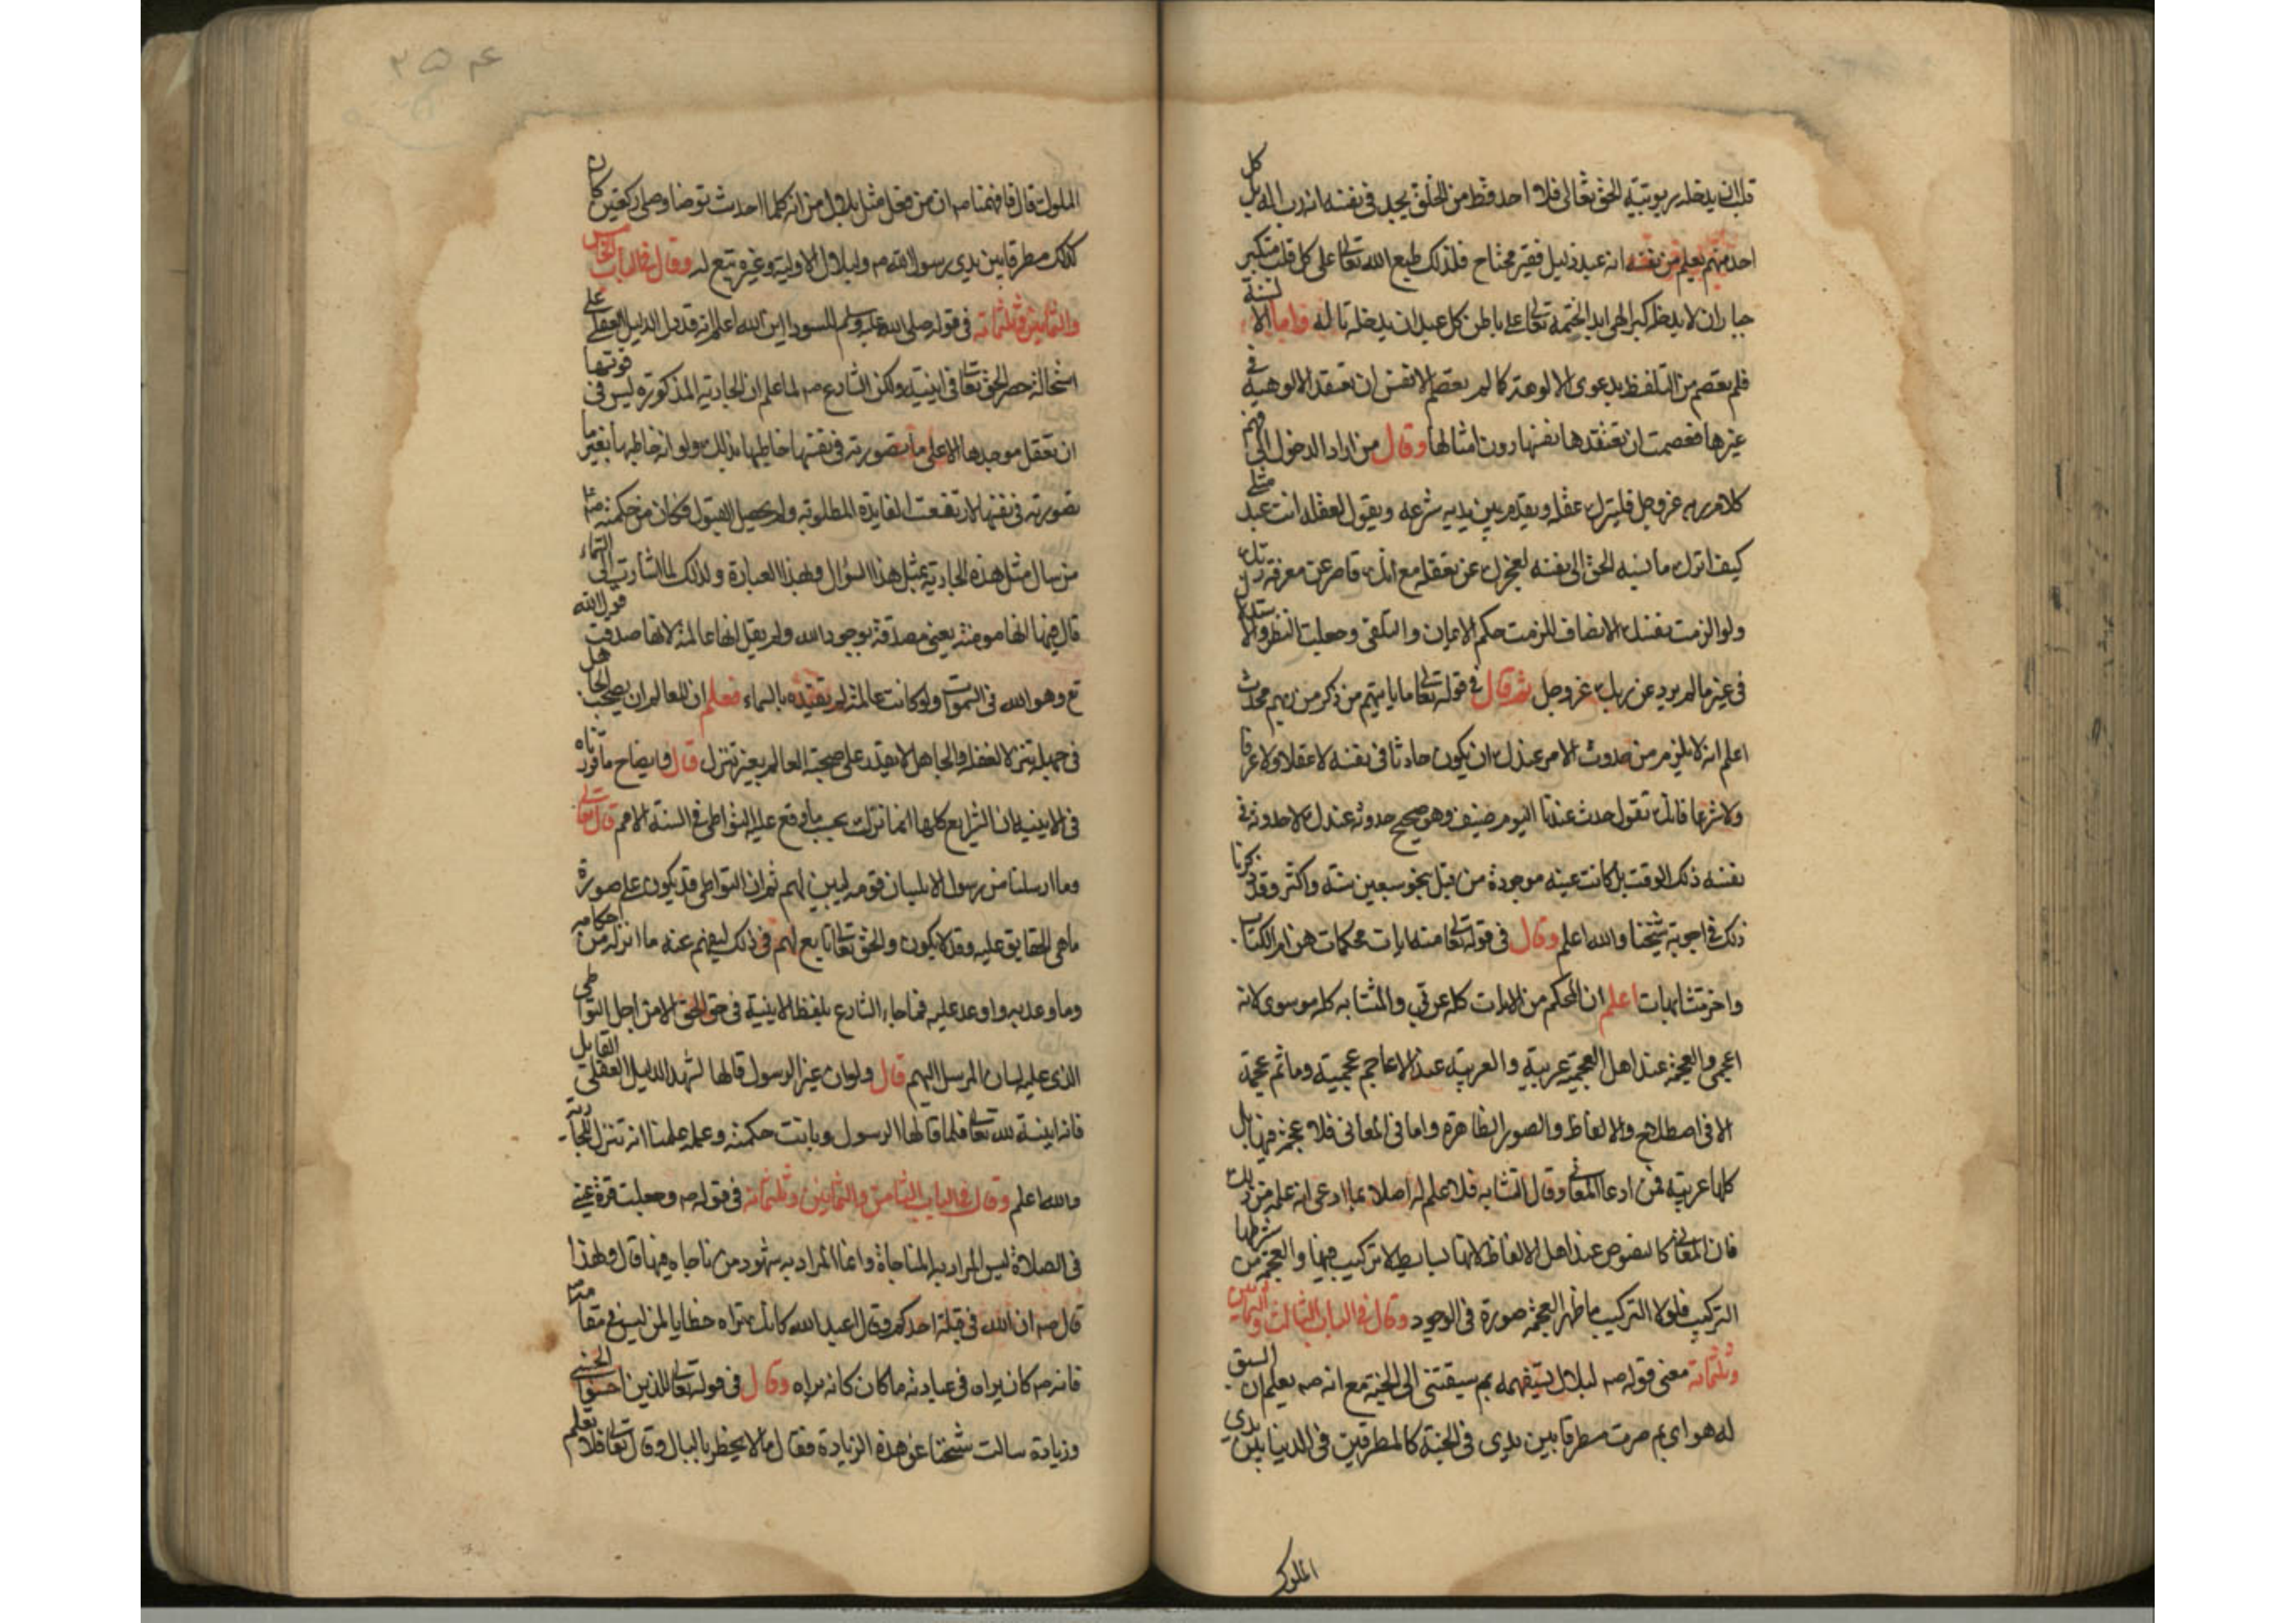 قلب ان يدخله ربوبية الحق تعالى فلا احد قط من الخلق يجد في نفسه انه رب اله بل كل
احد منهم يعلم من نفسه انه عبد ذليل فقير محتاج فلذلك طبع الله تعالى على كل قلب متكبر
جبار ان لا يدخله كبر الهي ابدا لختمه تعالى على باطن كل عبد ان يدخله تاله واما الالسنة
فلم يعصم من التلفظ بدعوى الالوهية كما لم يعصم الانفس ان تعتقد الالوهية في
غيرها فعصمت ان تعتقدها نفسها دون امثالها وقال من اراد الدخول الى فهم
كلام ربه عز وجل فليترك عقله ويقدم بين يديه شرعه ويقول لعقله انت عبد مثلي
كيف اترك ما نسبه الحق الى نفسه لعجزك عن تعقله مع انك قاصر عن معرفة ربك
ولو الزمت نفسك الانصاف للزمت حكم الايمان والتلقي وجعلت النظر والاستدلال
في غير ما لم يرد عن ربك عز وجل ثم قال في قوله تعالى ما ياتيهم من ذكر من ربهم محدث
اعلم انه لا يلزم من حدوث الامر عندك ان يكون حادثا في نفسه لا عقلا ولا عرفا
ولا شرعا فانك تقول حدث عندنا اليوم ضيف وهو صحيح حدوثه عندك لا حدوثه في
نفسه ذلك الوقت بل كانت عينه موجودة من قبل بنحو سبعين سنة واكثر وقد ذكرنا
ذلك في اجوبة شيخنا والله اعلم وقال في قوله تعالى منه ايات محكمات هن ام الكتاب
واخر متشابهات اعلم ان المحكم من الايات كله عربي والمتشابه كله موسوى لانه
اعجمي والعجمة عند اهل العجمة عربية والعربية عند الاعاجم عجمية وما ثم عجمة
الا في اصطلاح والالفاظ والصور الظاهرة واما في المعاني فلا عجمة فيها بل
كلها عربية فمن ادعا المعاني وقال التشابه فلا علم له اصلا بما ادعى انه علمه من ذلك
فان المعاني كالنصوص عند اهل الالفاظ لانها بسايط لا تركيب فيها والعجمة من شرطها
التركيب فلولا التركيب ما ظهر العجمة صورة في الوجود وقال في الباب الثالث والثمانين
وثلثمائة معنى قوله صم لبلال يستفهمه بم سبقتني الى الجنة مع انه صم يعلم ان السبق
له هو اى بم صرت مطرقا بين يدى في الجنة كالمطرقين في الدنيا بين يدي
الملوك
الملوك قال فافهمنا صم ان من فعل مثل بلال من انه كلما احدث توضا وصلى ركعتين كان
كذلك مطرقا بين يدي رسول الله صم ولبلال الاولية وغيره تبع له وقال في الباب الخامس
والثمانين وثلثمائة في قوله صلى الله عليه وسلم للسودا اين الله اعلم انه قد دل الدليل العقلي على
استحالة حصر الحق تعالى في اينية ولكن الشارع صم لما علم ان الجارية المذكورة ليس في قوتها
ان تعقل موجدها الا على ما تصورته في نفسها خاطبها بذلك ولو انه خاطبها بغير ما
تصورته في نفسها لارتفعت الفايدة المطلوبة ولم يحصل القبول فكان من حكمته صم
من سال مثل هذه الجارية بمثل هذا السؤال وبهذا العبارة ولذلك لما اشارت الى السماء
قال فيها انها مومنة يعني مصدقة بوجود الله ولم يقل انها عالمة لانها صدقت قول الله
تع وهو الله في السموات ولو كانت عالمة لم تقيده بالسماء فعلم ان للعالم ان يصحب الجاهل
في جهله تنزلا لعقله والجاهل لا يقدر على صحبة العالم بغير تنزل قال وايضاح ما قررناه
في الاينية ان الشرايع كلها انما نزلت بحسب ما وقع عليه التواطى في السنة الامم قال تعالى
وما ارسلنا من رسول الا بلسان قومه ليبين لهم ثم ان التواطى قد يكون على صورة
ما هي الحقايق عليه وقد لا يكون والحق تعالى تابع لهم في ذلك ليفهم عنه ما انزله من احكامه
وما وعد به واوعد عليه فما جاء الشارع بلفظ الاينية في حق الحق الا من اجل التواطى
الذى عليه لسان المرسل اليهم قال ولو ان غير الرسول قالها لشهد الدليل العقلي القايل
فانه اينية لله تعالى فلما قالها الرسول وبانت حكمته وعلمه علمنا انه تنزل للجارية
والله اعلم وقال في الباب الثامن والثمانين وثلثمائة في قوله صم وجعلت قرة عيني
في الصلاة ليس المراد به المناجاة وانما المراد به شهود من ناجاه فيها قال ولهذا
قال صم ان الله في قبلة احدكم وقال اعبد الله كانك تراه خطابا لمن ليس في مقامه
فانه صم كان يراه في عبادته ما كان كانه يراه وقال في قوله تعالى للذين احسنوا الحسنى
وزيادة سالت شيخنا عن هذه الزيادة فقال ما لا يخطر بالبال وقال تعالى فلا تعلم